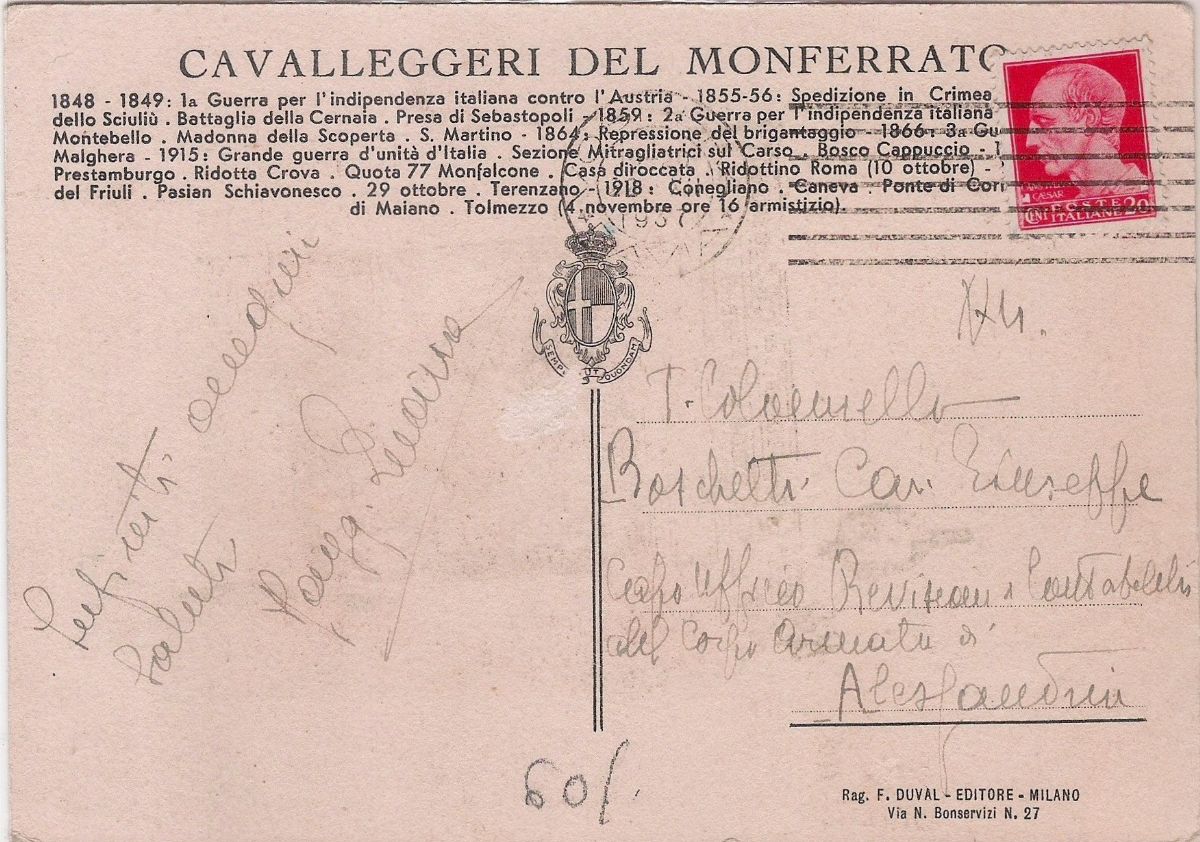 CAVALLEGGERI DEL MONFERRATO
1848 - 1849: 1a Guerra per l'indipendenza italiana contro l'Austria - 1855-56: Spedizione in Crimea
dello Sciuliù . Battaglia della Cernaia . Presa di Sebastopoli - 1859: 2a Guerra per l'indipendenza italiana
Montebello . Madonna della Scoperta . S. Martino - 1864: Repressione del brigantaggio - 1866: 3a Gu
Malghera - 1915: Grande guerra d'unità d'Italia . Sezione Mitragliatrici sul Carso . Bosco Cappuccio - 1
Prestamburgo . Ridotta Crova . Quota 77 Monfalcone . Casa diroccata . Ridottino Roma (10 ottobre) -
del Friuli . Pasian Schiavonesco . 29 ottobre . Terenzano - 1918: Conegliano . Caneva . Ponte di Cor
di Maiano . Tolmezzo (4 novembre ore 16 armistizio).
CAESAR
CENT. POSTE 20
ITALIANE
SEMPER UT QUONDAM
saluti ossequi
Magg.
T. Colonnello
Boschetti Cav. Giuseppe
Capo Ufficio Revisioni Contabili
del Corpo Armata di
Alessandria
60/
Rag. F. DUVAL - EDITORE - MILANO
Via N. Bonservizi N. 27